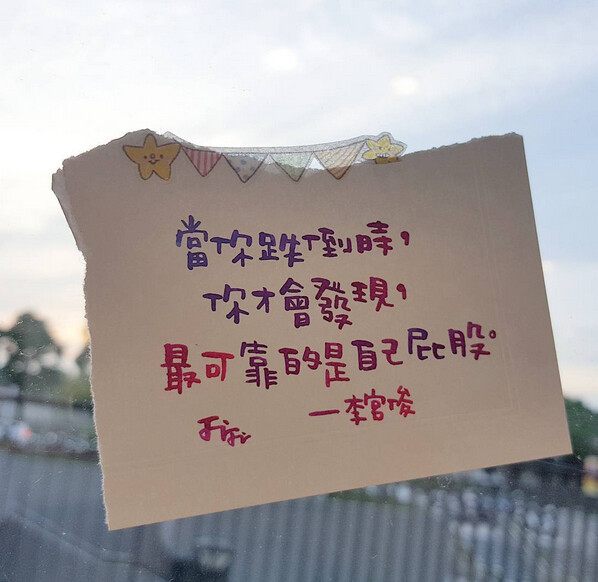 當你跌倒時，
你才會發現，
最可靠的是自己屁股。
一李官俊